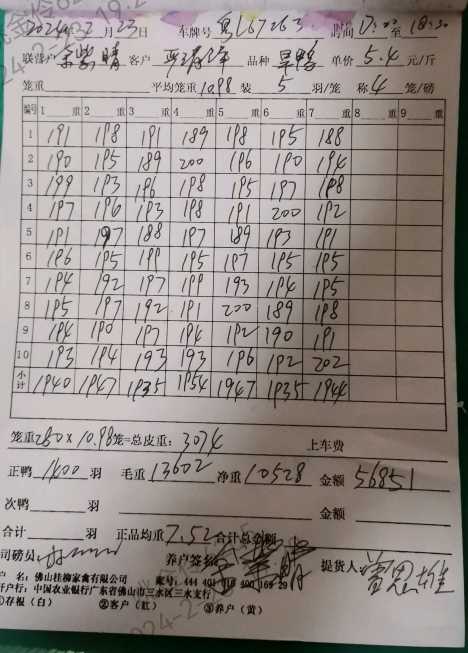 2024年2月23日 车牌号 时间 17:00 至 18:30
联营户 客户 品种 旱鸭 单价 5.4 元/斤
笼重 平均笼重 10.98 装 5 羽/笼 称 4 笼/磅
编号 1 重 2 重 3 重 4 重 5 重 6 重 7 重 8 重 9 重
1 191 198 191 189 198 195 188
2 190 195 189 200 196 190 194
3 199 193 196 198 195 197 198
4 197 196 193 198 191 200 192
5 191 197 188 197 189 193 191
6 196 195 199 195 197 195 195
7 194 192 197 199 193 194 195
8 195 197 192 191 200 189 198
9 194 190 197 194 192 190 191
10 193 194 193 193 196 192 202
小计 1940 1947 1935 1954 1947 1935 1944
笼重 280 × 10.98 笼=总皮重: 3074 上车费
正鸭 1400 羽 毛重 13602 净重 10528 金额 56851
次鸭 羽 金额
合计 羽 正品均重 7.52 合计总金额
司磅员 养户签名 提货人 曾思雄
户 名: 佛山桂柳家禽有限公司 账号: 444 401 010 400 169 29
开户行: 中国农业银行广东省佛山市三水区三水支行
①存根（白） ②客户（红） ③养户（黄）